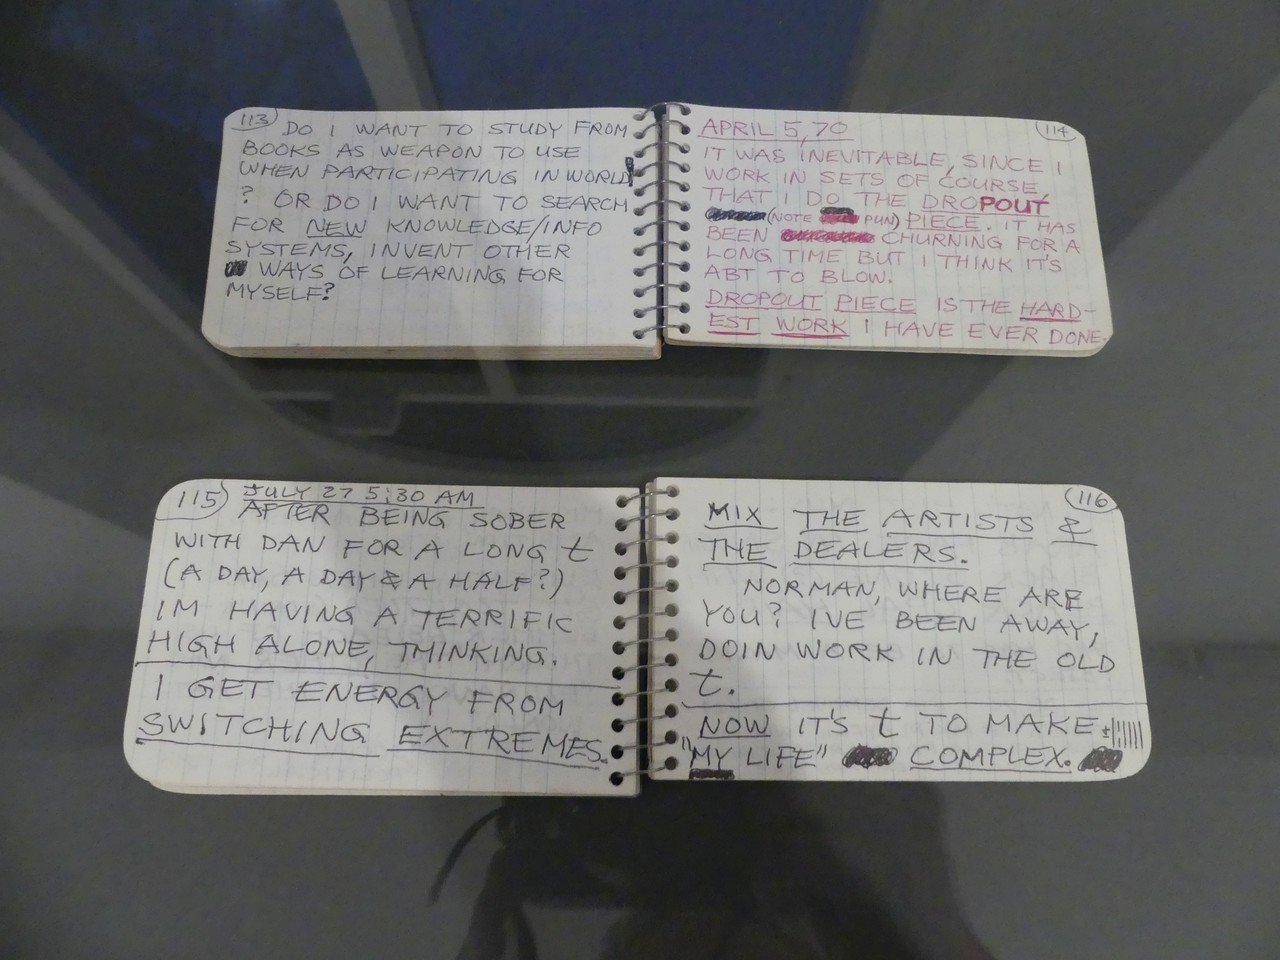 113
DO I WANT TO STUDY FROM
BOOKS AS WEAPON TO USE
WHEN PARTICIPATING IN WORLD
? OR DO I WANT TO SEARCH
FOR NEW KNOWLEDGE/INFO
SYSTEMS, INVENT OTHER
WAYS OF LEARNING FOR
MYSELF?
114
APRIL 5, 70
IT WAS INEVITABLE, SINCE I
WORK IN SETS OF COURSE,
THAT I DO THE DROPOUT
(NOTE PUN) PIECE. IT HAS
BEEN CHURNING FOR A
LONG TIME BUT I THINK IT'S
ABT TO BLOW.
DROPOUT PIECE IS THE HARD-
EST WORK I HAVE EVER DONE.
115
JULY 27 5:30 AM
AFTER BEING SOBER
WITH DAN FOR A LONG t
(A DAY, A DAY & A HALF?)
IM HAVING A TERRIFIC
HIGH ALONE, THINKING.
I GET ENERGY FROM
SWITCHING EXTREMES.
116
MIX THE ARTISTS &
THE DEALERS.
NORMAN, WHERE ARE
YOU? IVE BEEN AWAY,
DOIN WORK IN THE OLD
t.
NOW IT'S t TO MAKE
"MY LIFE" COMPLEX.